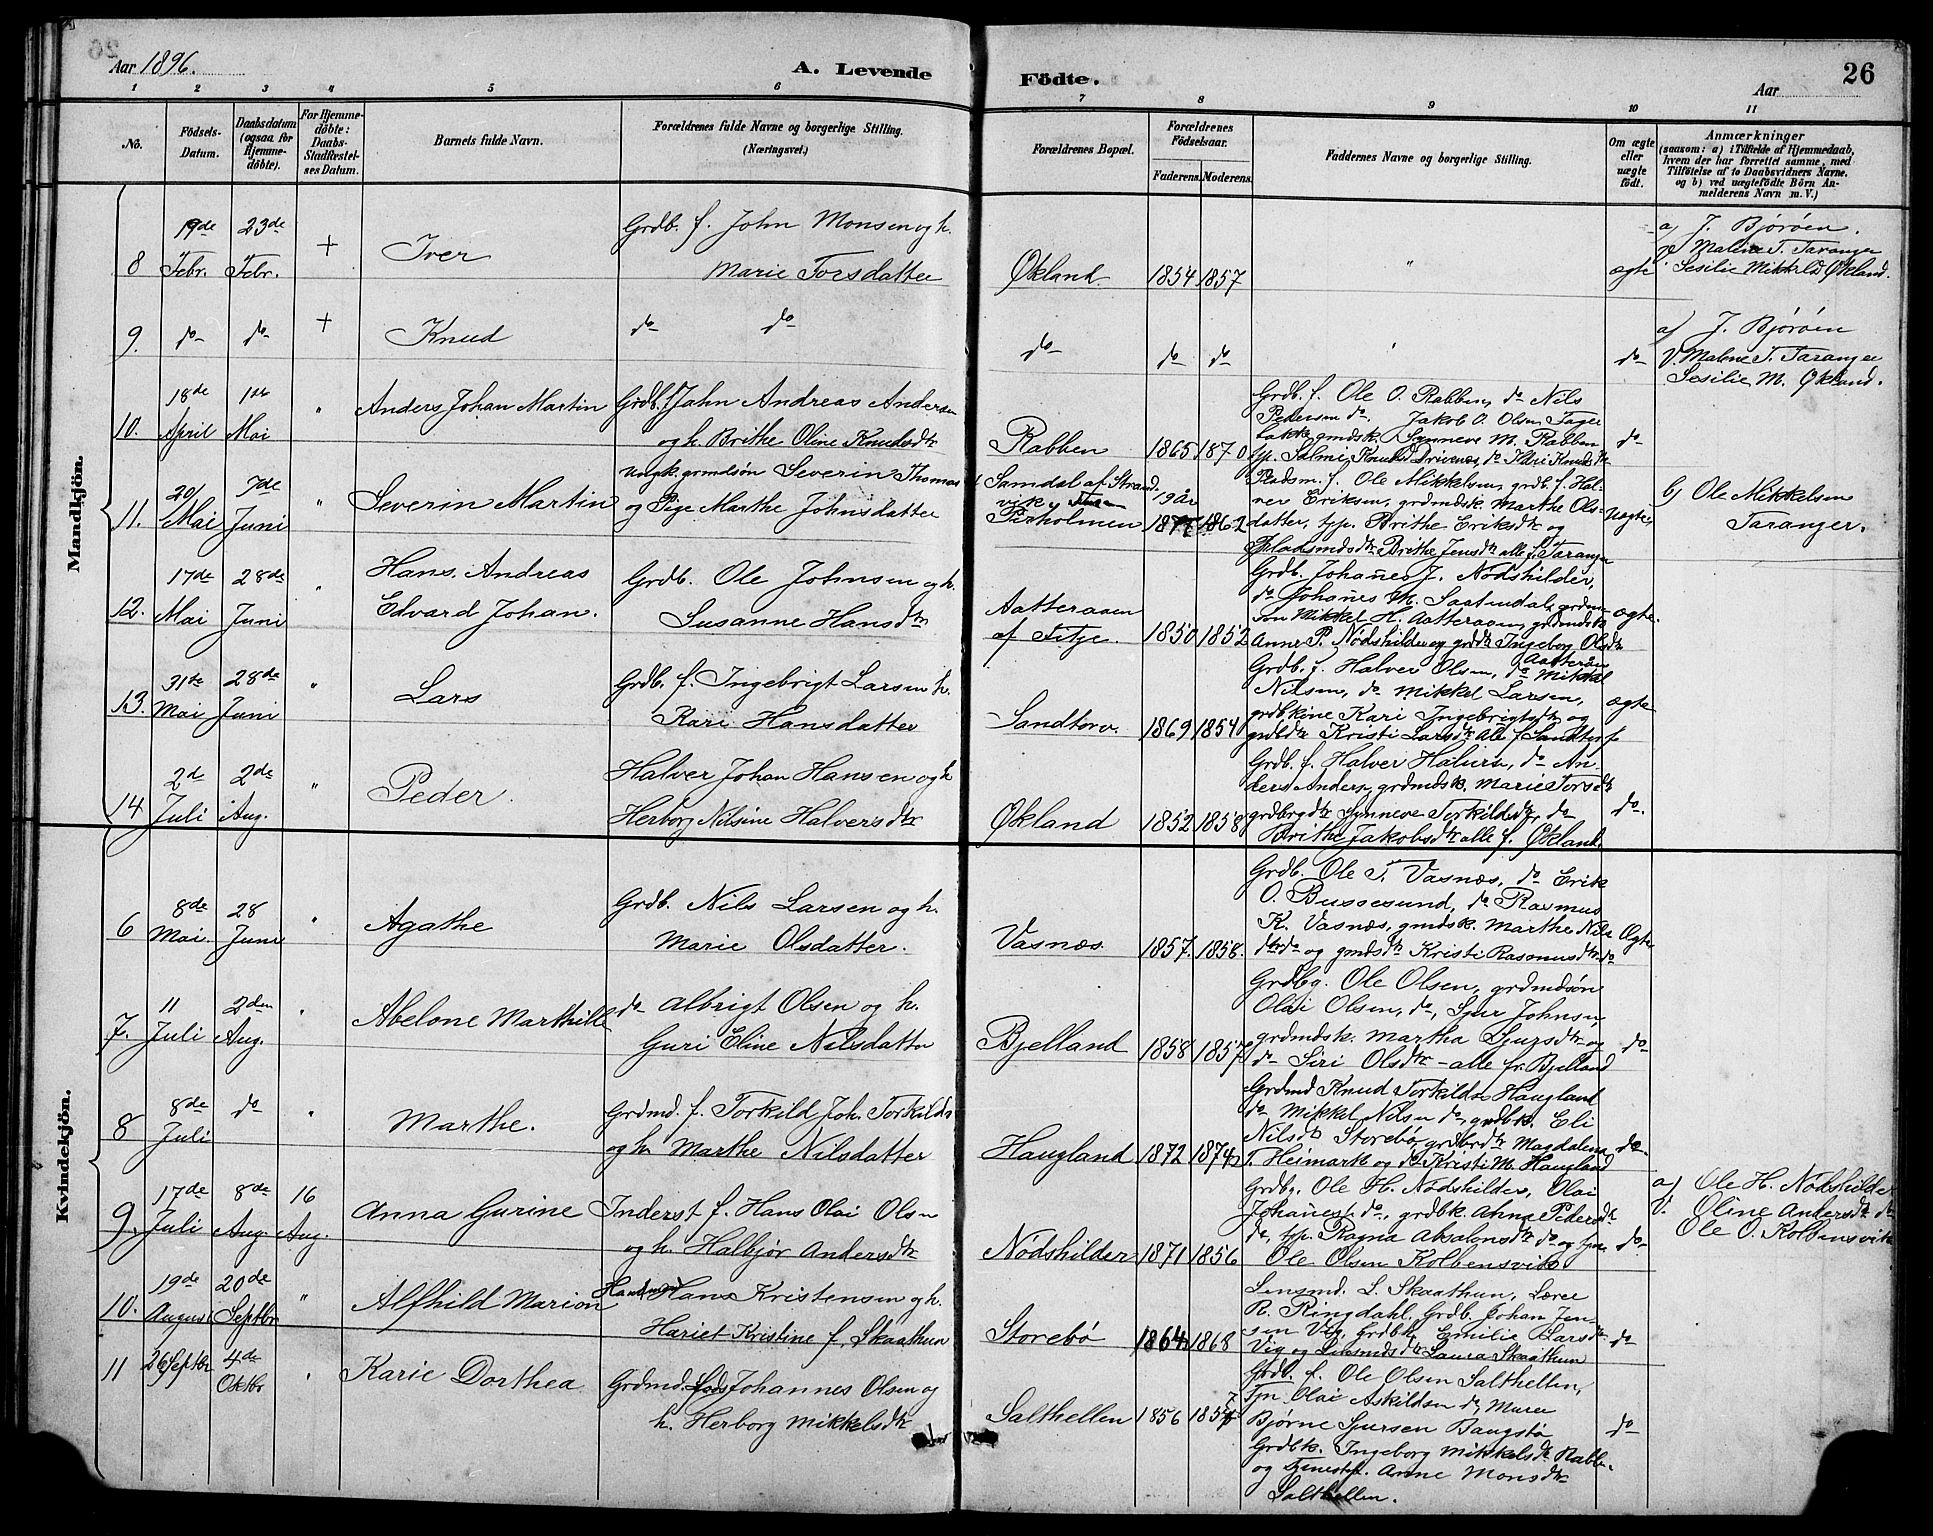 Aar 1896.
A. Levende Födte.
Aar
26
1 2 3 4 5 6 7 8 9 10 11
No.
Födsels-Datum.
Daabsdatum (ogsaa for Hjemme-döbte).
For Hjemme-döbte: Daabs-Stadfæstel-ses Datum.
Barnets fulde Navn.
Forældrenes fulde Navne og borgerlige Stilling. (Næringsvei.)
Forældrenes Bopæl.
Forældrenes Födselsaar.
Faderens. Moderens.
Faddernes Navne og borgerlige Stilling.
Om ægte eller uægte födt.
Anmærkninger
(saasom: a) i Tilfælde af Hjemmedaab,
hvem der har forrettet samme, med
Tilföielse af to Daabsvidners Navne.
og b) ved uægtefödte Börn An-
melderens Navn m. V.)
Mandkjön.
8 19de Febr. 23de Febr. + Iver
Grdb. f. John Monsen og h.
Marie Torsdatter
Økland 1854 1857 " ægte
a) J. Bjørøen.
V. Malene T. Taranger
Sesilie Mikkelsd Økland.
9. do do + Knud do do
do do do do
a) J. Bjørøen
V. Malene T. Taranger
Sesilie M. Økland.
10. 18de April 1ste Mai " Anders Johan Martin
Grdb. f. John Andreas Andersen
og h. Brithe Oline Knudsdtr
Rabben 1865 1870
Grdb. f. Ole O. Rabben, do Nils
Pedersen do Jakob O. Olsen Tager
bakke, gmdsk. Synneve M. Rabben
tjp. Salmi Knudsd Drivenes, do Kari Knudsdtr
do
11. 20/ Mai 7de Juni " Severin Martin
Ungk. grmdsön Severin Thomas
og Pige Marthe Johnsdatter
f Samdal af Strand
vik,
Pirholmen 19 år 1877 1862
Pladsm. f. Ole Mikkelsen, grdb. f. Hal-
ver Eriksen, grdmdsk. Marthe Ols-
datter, tjp. Brithe Eriksdtr og
Pladsmdsdtr Brithe Jensdtr alle f. Taranger
uægte,
b) Ole Mikkelsen
Taranger.
12. 17de Mai 28de Juni " Hans Andreas
Edvard Johan.
Grdb. Ole Johnsen og h.
Susanne Hansdtr
Aatteraaen
af Fitje 1850 1852
Grdb. Johañes J. Nødshilder,
do Johañes M. Saatendal, grdm-
sön Mikkel H. Aatteraaen, grdmdsk
Anne P. Nødshilder og grddtr Ingeborg Olsdtr
Aatteråen
ægte.
13. 31te Mai 28de Juni " Lars
Grdb. f. Ingebrigt Larsen h.
Kari Hansdatter
Sandtorv. 1869 1854
Grdb. f. Halver Olsen, do Mikkel
Nilsen, do Mikkel Larsen,
grdbkine Kari Ingebrigtsdtr og
grdbdtr Kristi Larsdtr alle f. Sandtorf
ægte
14 2de Juli 2de Aug. " Peder.
Halver Johan Hansen og h
Herborg Nilsine Halversdtr
Økland 1852 1858
Grdb. f. Halver Halvers, do An-
ders Anders, grdmdsk. Marie Torsdtr
grdbrgdtr Synneve Torkildsdtr, do
Brithe Jakobsdtr alle f. Økland.
do.
Kvindekjön.
6 8de Mai 28 Juni " Agathe
Grdb. Nils Larsen og h.
Marie Olsdatter.
Vasnæs. 1857. 1858.
Grdb. Ole T. Vasnæs, do Erik
O. Bussesund, do Rasmus
K. Vasnæs, gmdsk. Marthe Nils
dtr do og gmdsdtr Kristi Rasmusdtr do
Ægte
7. 11 Juli 2den Aug. " Abelone Marthille
do Albrigt Olsen og h.
Guri Eline Nilsdatter
Bjelland 1858 1857
Grdbg. Ole Olsen, grdmdsön
Olai Olsen, do, Sjur Johnsen,
grdmdsk. Martha Sjursdtr og
do Siri Olsdtr - alle fr. Bjelland
do
8 8de Juli do " Marthe.
Grdmd. f. Torkild Joh. Torkilds
og h. Marthe Nilsdatter
Haugland 1872 1874
Grdmd Knud Torkilds Haugland
do Mikkel Nilsen do, grdbk. Eli
Nilsdtr Storebø, grdbrdtr Magdalena
T. Heimark og do Kristi M. Haugland
do
9. 17de Juli 8de Aug. 16 Aug. Anna Gurine
Inderst f. Hans Olai Olsen
og h. Halbjør Andersdtr
Nødshilder 1871 1856
Grdbg. Ole H. Nødshilder, Olai
Johanes, do, grdbk. Anna Pedersdtr
do, tjp. Ragna Aksalonsdtr do og tjn.
Ole Olsen Kolbensvik
do
a) Ole H. Nødshilder
V. Oline Andersdtr do
Ole O. Kolbensvik
10. 19de August 20de Septbr. " Alfhild Marion
Handlmd Hans Kristensen og h.
Hariet Kristine f. Skaathun
Storebø 1864 1868
Lensmd. L. Skaathun, Lærer
R. Ringdahl. Grdb. Johan Jen-
sen Vig, Grdbk. Emilie Larsdtr
Vig og Lensmdsdtr Laura Skaathun
do
11 26 Septbr 4de Oktbr " Karie Dorthea
Grdmd. Johannes Olsen og
h. Herborg Mikkelsdtr
Salthellen 1856 1857
Grdb. f. Ole Olsen Salthellen,
Tjn Olai Askildsen do, Murer
Bjørne Sjursen Baugstø
Grdbk. Ingeborg Mikkelsdtr Rabben
og Tjenestpi. Anne Monsdtr
Salthellen.
do